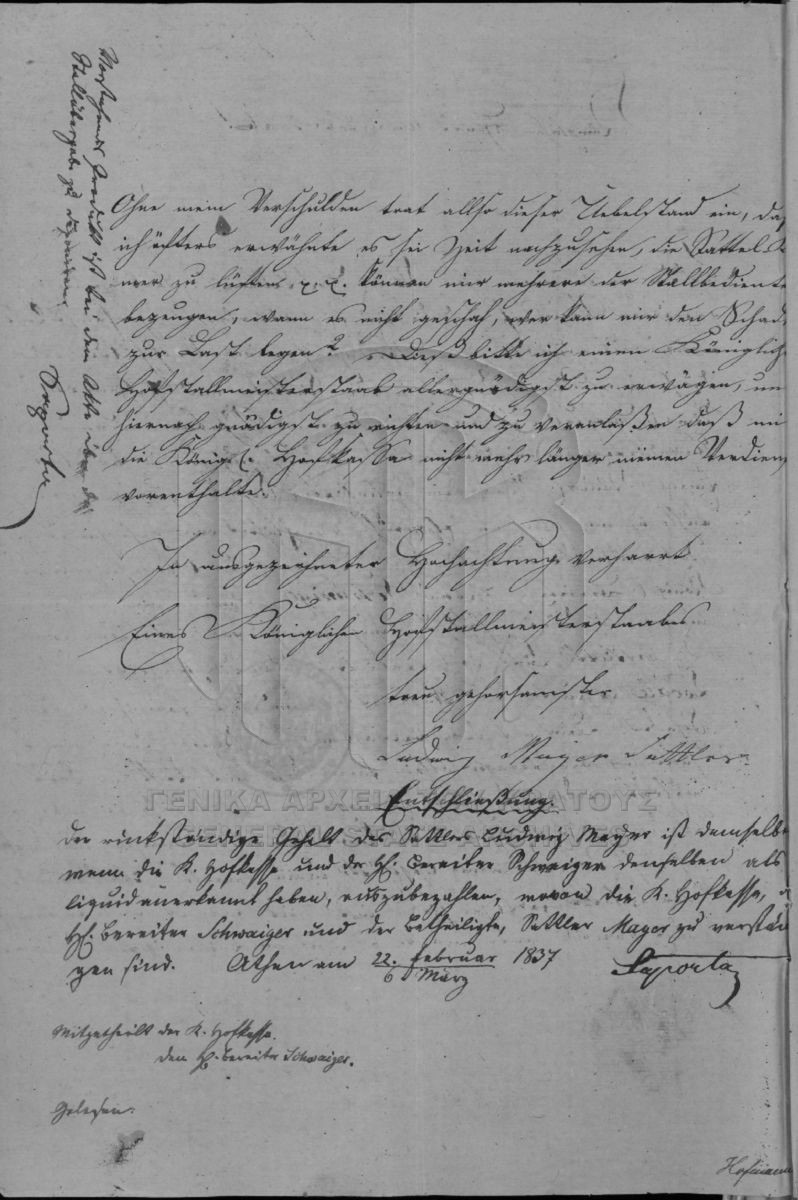 Vorstehendes Produkt ist bei dem Akte über die
Stallübergabe zu
Saporta
Ohne mein Verschulden trat allso dieser Uebelstand ein, daß
ich öfters erwähnte es sei Zeit nachzusehen, die Sattelka
mer zu lüften x. x. können mir mehrere der Stallbediente
bezeugen, wann es nicht geschah, wer kann mir den Schad
zur Last legen? Dieß bitte ich einen Königlich
Hofstallmeisterstaab allergnädigst zu erwägen, un
hiernach gnädigst zu richten und zu veranlaßen daß mi
die Königl. Hofkassa nicht mehr länger meinen Verdiens
vorenthalte.
In ausgezeichneter Hochachtung verharrt
Eines Königlichen Hofstallmeisterstaabes
treu gehorsamster
Ludwig Mayer Sattler
ΓΕΝΙΚΑ ΑΡΧΕΙΑ ΤΟΥ ΚΡΑΤΟΥΣ
Entschließung.
Der rückständige Gehalt des Sattlers Ludwig Mayer ist demselbe
wenn die K. Hofkasse und der H. Bereiter Schwaiger denselben als
liquid anerkannt haben, auszubezahlen, wovon die K. Hofkasse,
H. Bereiter Schwaiger und der Betheiligte, Sattler Mayer zu verstän
gen sind. Athen am 22. Februar 1837 Saporta
6 März
Mitgetheilt der K. Hofkasse.
dem H. Bereiter Schwaiger.
Gelesen:
Hofmann